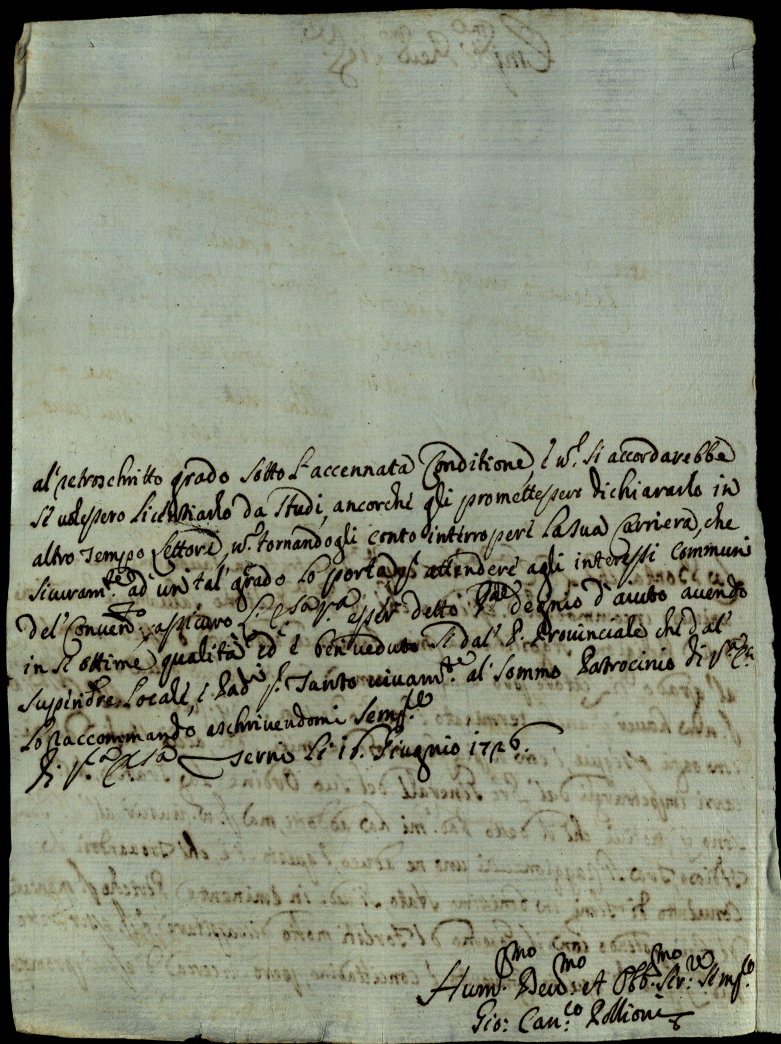 al' retroschritto grado sotto l'accennata Conditione, e n.' si accordarebbe
se volessero licentiarlo da studi, ancorche gli promettessero dichiararlo in
altro tempo Lettore, n.' tornandogli conto interropere la sua Carriera, che
sicuram.te ad un' tal' grado lo porta p. attendere agli interessi communi
del' Convento, assicuro L' E.sa V.a esser detto degnio d'aiuto avendo
in se ottime qualità ed' è ben veduto sì dal' P. Provinciale che dal'
Locale, e p. tanto vivam.te al' sommo Patrocinio di V.ra E.za
lo raccommando aschrivendomi semp.re
di V.ra E.sa Terni li 16. Giugnio 1726.
Hum.mo Dev.mo et Obb.mo Ser.re
Gio: Can.co Pollioni